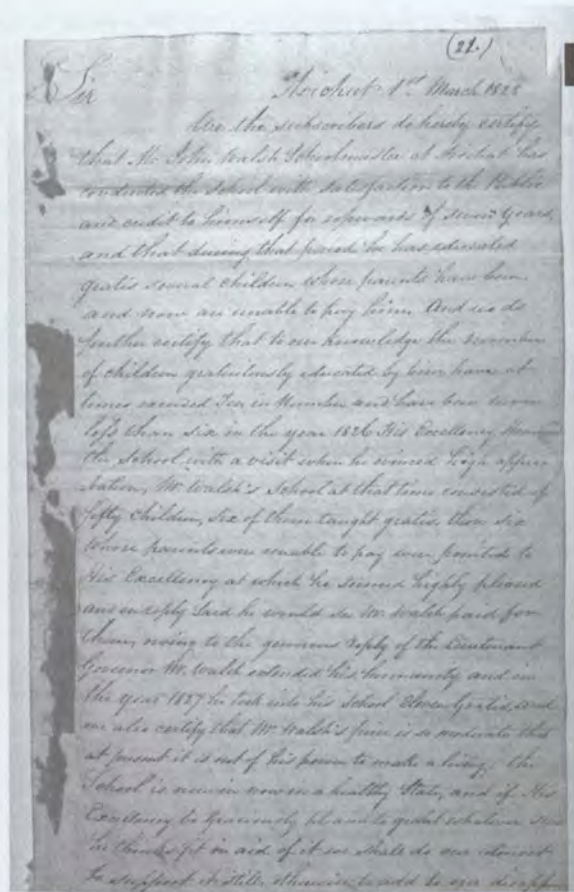 (21.)
Sir Arichat 1st March 1828
We the subscribers do hereby certify
that Mr. John Walsh Schoolmaster at Arichat has
conducted the School with satisfaction to the Public
and credit to himself for upwards of seven Years,
and that during that period he has educated
gratis several children whose parents have been
and now are unable to pay him. And we do
further certify that to our knowledge the number
of children gratuitously educated by him have at
times exceeded Ten in Number and have been never
less than six in the year 1826 His Excellency
the School with a visit when he evinced high appro
bation, Mr. Walsh's School at that time consisted of
fifty children, six of them taught gratis, these six
whose parents were unable to pay were pointed to
His Excellency at which he seemed highly pleased
and in reply said he would see Mr. Walsh paid for
them, owing to the generous reply of the Lieutenant
Governor Mr. Walsh extended his humanity and in
the year 1827 he took into his School Eleven Gratis, and
we also certify that Mr. Walsh's is so moderate that
at present it is out of his power to make a living. the
School is now in a healthy State, and if His
Excellency be Graciously pleased to grant whatever
he thinks fit in aid of it we shall do our utmost
to support it still, otherwise to add to our